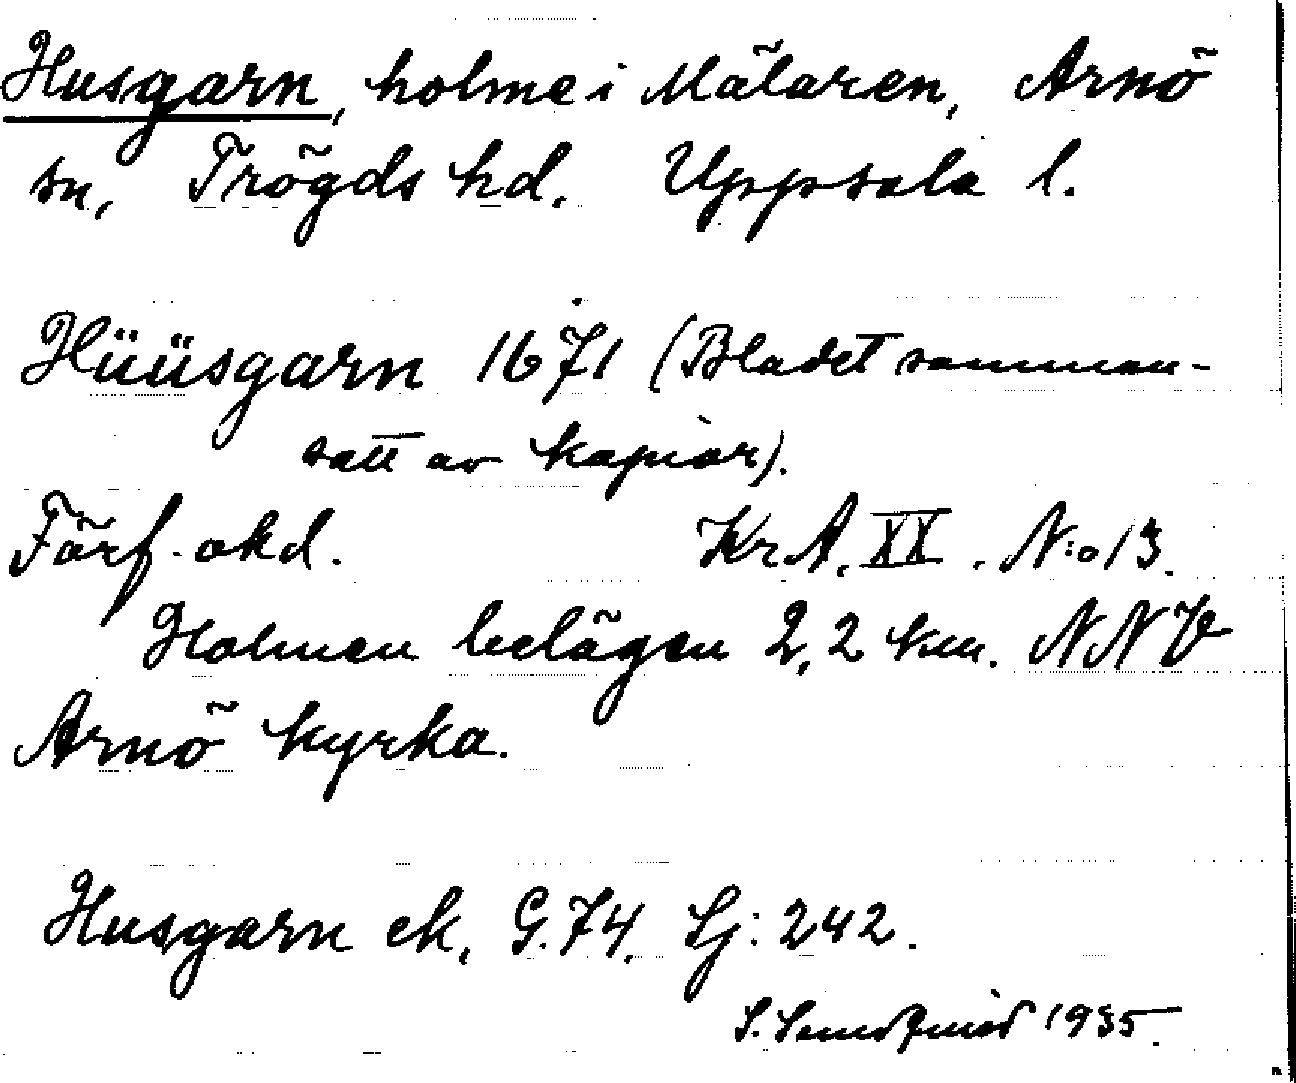 Husgarn, holme i Mälaren, Arnö
sn, Trögds hd. Uppsala l.
Hüüsgarn 1671 (Bladet samman-
satt av kapior).
Förf. okd. Kr.A. XX. N:o 13.
Holmen belägen 2,2 km. NNV
Arnö kyrka.
Husgarn ek, G.74. Sj: 242.
S. 1935.